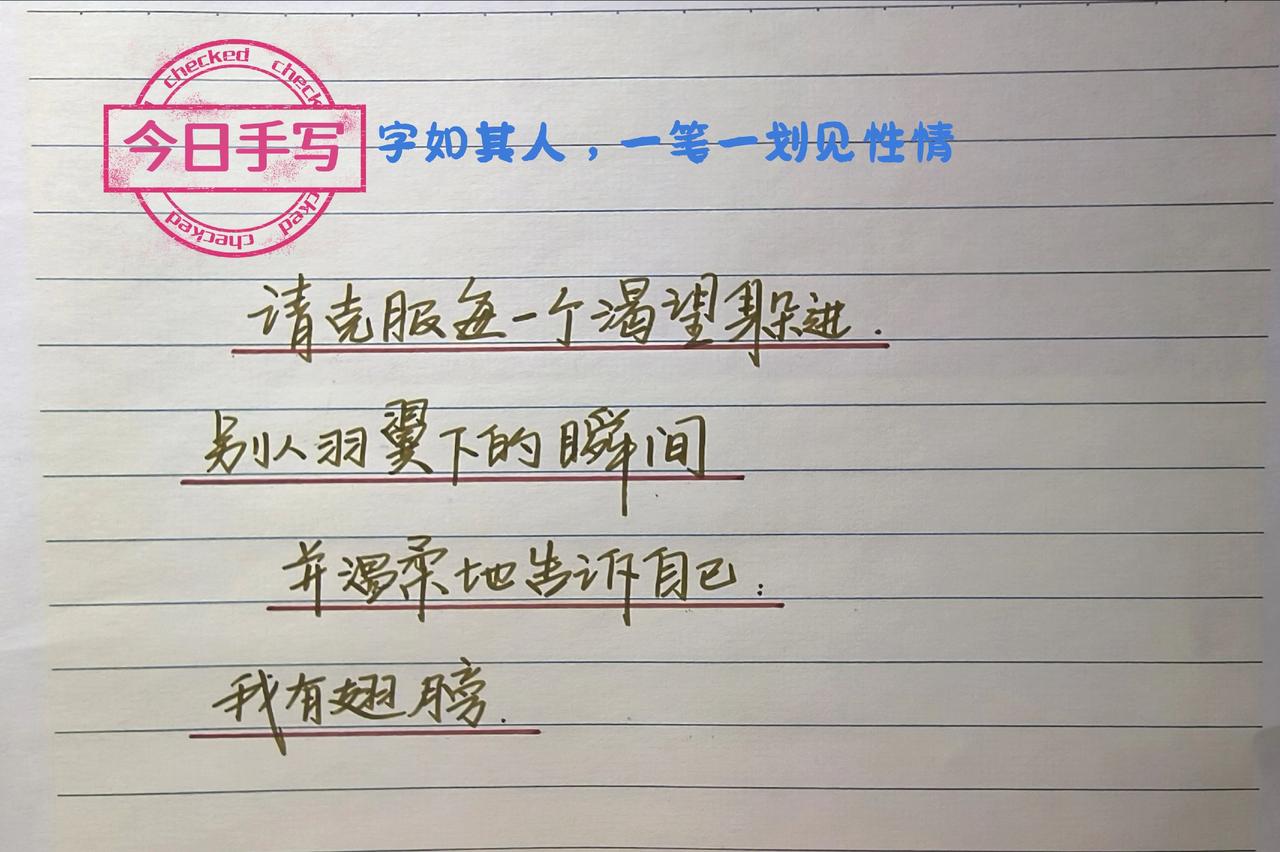 checked checked
今日手写
字如其人，一笔一划见性情
checked checked
请克服每一个渴望躲进.
别人羽翼下的瞬间
并温柔地告诉自己:
我有翅膀.